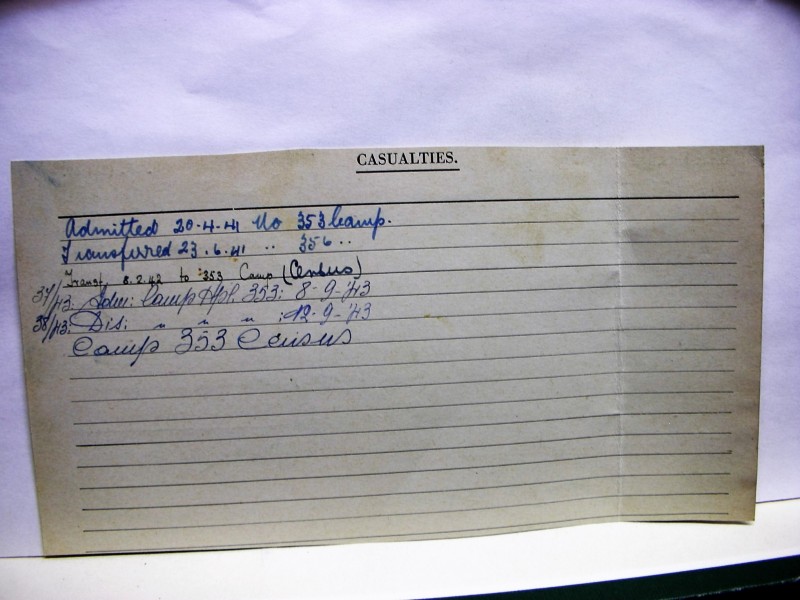 CASUALTIES.
Admitted 20-4-41 No 353 Camp.
Transferred 23.6.41 " 356 "
Transf. 8.2.42 to 353 Camp (Census)
37/43: Adm: Camp Hpl. 353: 8-9-'43
38/43: Dis: " " " : 12-9-'43
Camp 353 Census